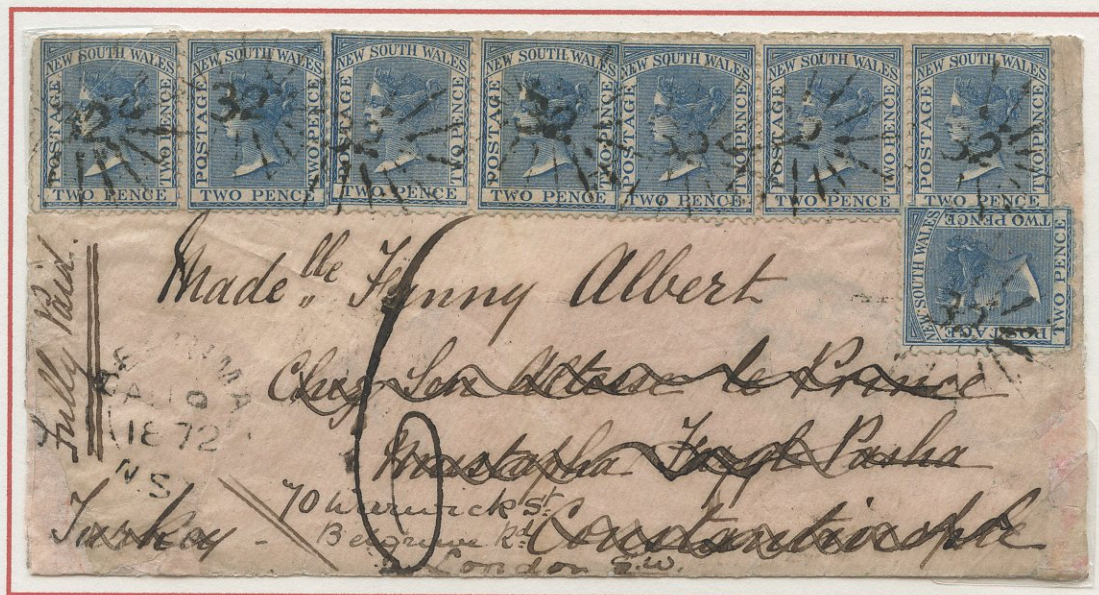 NEW SOUTH WALES POSTAGE TWO PENCE TWO PENCE
NEW SOUTH WALES POSTAGE TWO PENCE TWO PENCE
NEW SOUTH WALES POSTAGE TWO PENCE TWO PENCE
NEW SOUTH WALES POSTAGE TWO PENCE TWO PENCE
NEW SOUTH WALES POSTAGE TWO PENCE TWO PENCE
NEW SOUTH WALES POSTAGE TWO PENCE TWO PENCE
NEW SOUTH WALES POSTAGE TWO PENCE TWO PENCE
NEW SOUTH WALES POSTAGE TWO PENCE TWO PENCE
32
32
32
32
Fully Paid.
Madelle Fanny Albert
Chez Son Altesse le Prince
Mustapha Fazyl Pasha
Constantinople
Turkey
70 Warwick St.
Belgrave Rd
London S.W.
1872
N.S